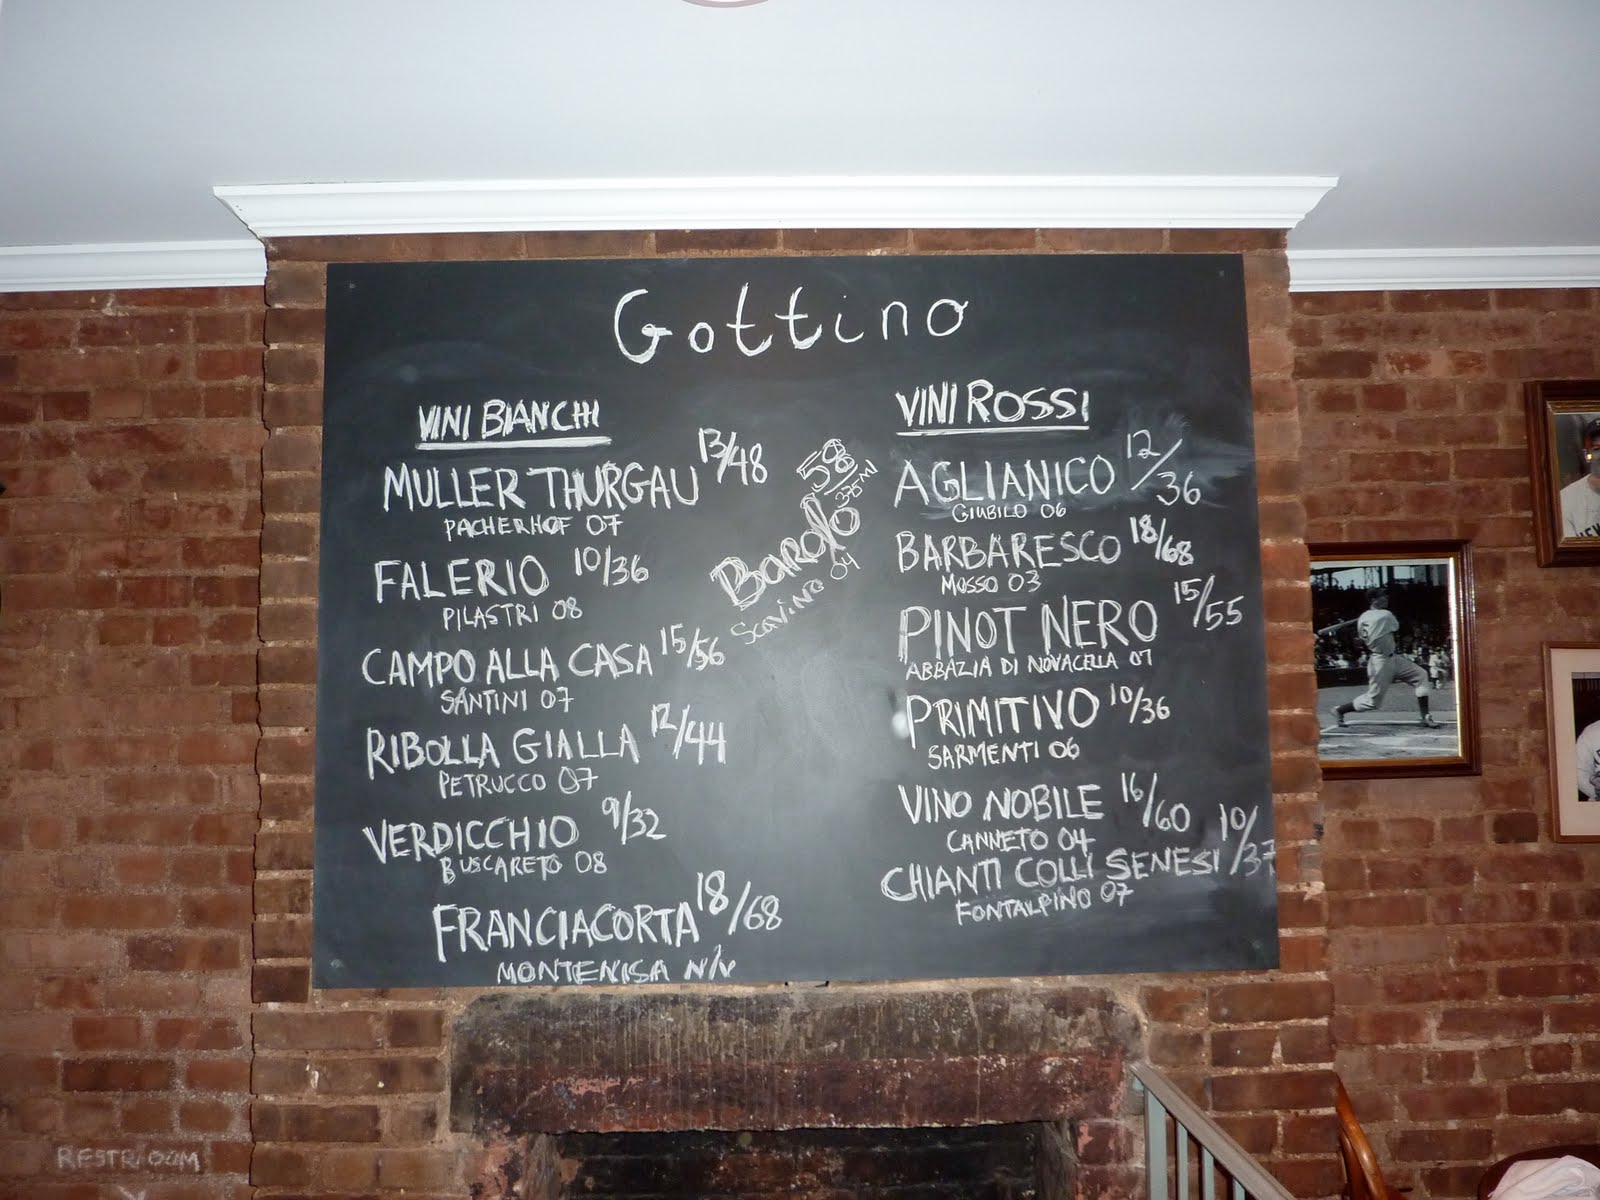 Gottino
VINI BIANCHI
MULLER THURGAU 13/48
PACHERHOF 07
FALERIO 10/36
PILASTRI 08
CAMPO ALLA CASA 15/56
SANTINI 07
RIBOLLA GIALLA 12/44
PETRUCCO 07
VERDICCHIO 9/32
BUSCARETO 08
FRANCIACORTA 18/68
MONTENISA N/V
58
375 Ml
Barolo
Scavino 04
VINI ROSSI
AGLIANICO 12/36
GIUBILO 06
BARBARESCO 18/68
MOSSO 03
PINOT NERO 15/55
ABBAZIA DI NOVACELLA 07
PRIMITIVO 10/36
SARMENTI 06
VINO NOBILE 16/60
CANNETO 04
CHIANTI COLLI SENESI 10/37
FONTALPINO 07
RESTROOM